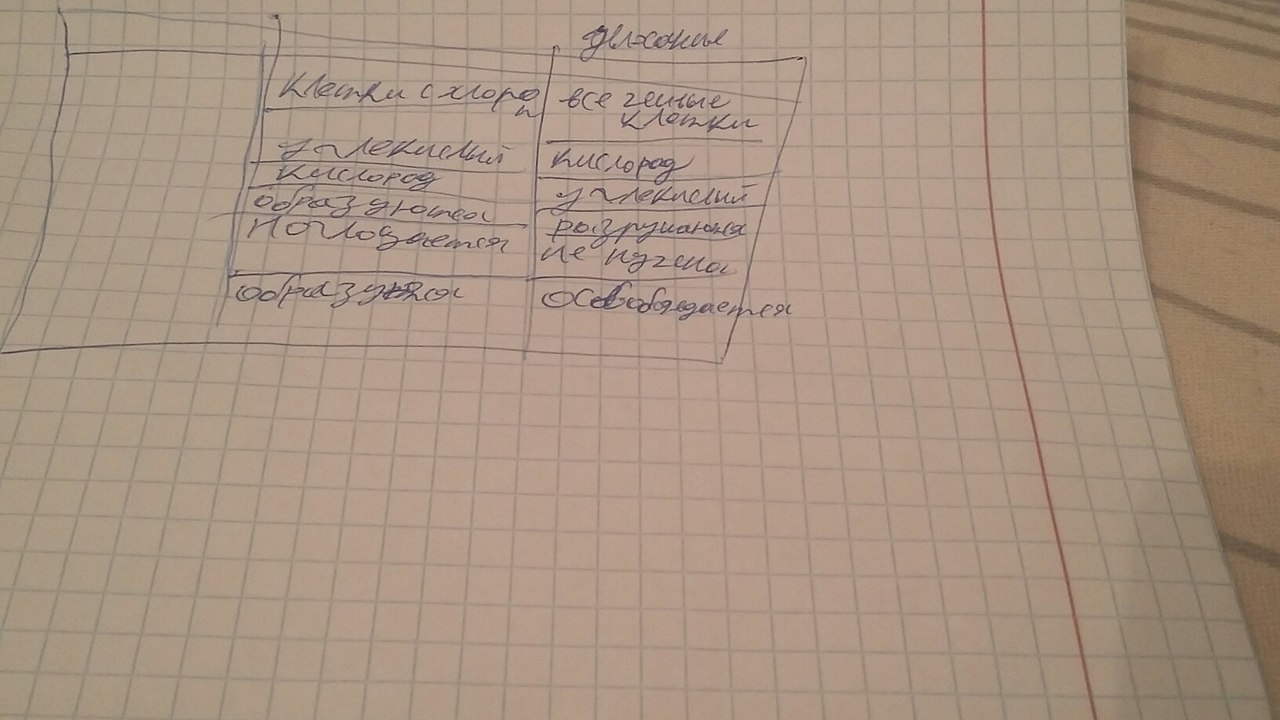 дыхание
клетки с хлороп
все
клетки
углекислый
кислород
кислород
углекислый
образуются
разрушаются
поглощается
не нужена
образуется
освобождается